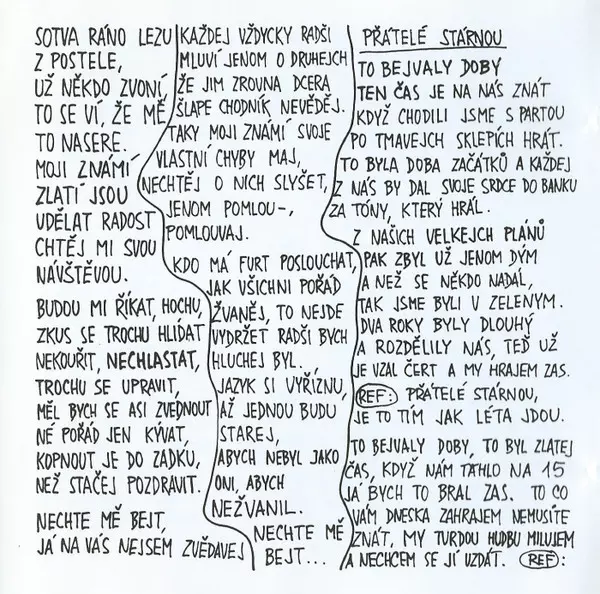 SOTVA RÁNO LEZU
Z POSTELE,
UŽ NĚKDO ZVONÍ,
TO SE VÍ, ŽE MĚ
TO NASERE.
MOJI ZNÁMÍ
ZLATÍ JSOU
UDĚLAT RADOST
CHTĚJ MI SVOU
NÁVŠTĚVOU.
BUDOU MI ŘÍKAT, HOCHU,
ZKUS SE TROCHU HLÍDAT
NEKOUŘIT, NECHLASTAT,
TROCHU SE UPRAVIT,
MĚL BYCH SE ASI ZVEDNOUT
NÉ POŘÁD JEN KÝVAT,
KOPNOUT JE DO ZADKU,
NEŽ STAČEJ POZDRAVIT.
NECHTE MĚ BEJT,
JÁ NA VÁS NEJSEM ZVĚDAVEJ
KAŽDEJ VŽDYCKY RADŠI
MLUVÍ JENOM O DRUHEJCH
ŽE JIM ZROVNA DCERA
ŠLAPE CHODNÍK NEVĚDĚJ.
TAKY MOJI ZNÁMÍ SVOJE
VLASTNÍ CHYBY MAJ,
NECHTĚJ O NICH SLYŠET,
JENOM POMLOU-,
POMLOUVAJ.
KDO MÁ FURT POSLOUCHAT,
JAK VŠICHNI POŘÁD
ŽVANĚJ, TO NEJDE
VYDRŽET RADŠI BYCH
HLUCHEJ BYL.
JAZYK SI VYŘÍZNU,
AŽ JEDNOU BUDU
STAREJ,
ABYCH NEBYL JAKO
ONI, ABYCH
NEŽVANIL.
NECHTE MĚ
BEJT...
PŘÁTELÉ STÁRNOU
TO BEJVALY DOBY
TEN ČAS JE NA NÁS ZNÁT
KDYŽ CHODILI JSME S PARTOU
PO TMAVEJCH SKLEPÍCH HRÁT.
TO BYLA DOBA ZAČÁTKŮ A KAŽDEJ
Z NÁS BY DAL SVOJE SRDCE DO BANKU
ZA TÓNY, KTERÝ HRÁL.
Z NAŠICH VELKEJCH PLÁNŮ
PAK ZBYL UŽ JENOM DÝM
A NEŽ SE NĚKDO NADÁL,
TAK JSME BYLI V ZELENYM.
DVA ROKY BYLY DLOUHÝ
A ROZDĚLILY NÁS, TEĎ UŽ
JE VZAL ČERT A MY HRAJEM ZAS.
REF: PŘÁTELÉ STÁRNOU,
JE TO TÍM JAK LÉTA JDOU.
TO BEJVALY DOBY, TO BYL ZLATEJ
ČAS, KDYŽ NÁM TÁHLO NA 15
JÁ BYCH TO BRAL ZAS. TO CO
VÁM DNESKA ZAHRAJEM NEMUSÍTE
ZNÁT, MY TVRDOU HUDBU MILUJEM
A NECHCEM SE JÍ VZDÁT. REF: